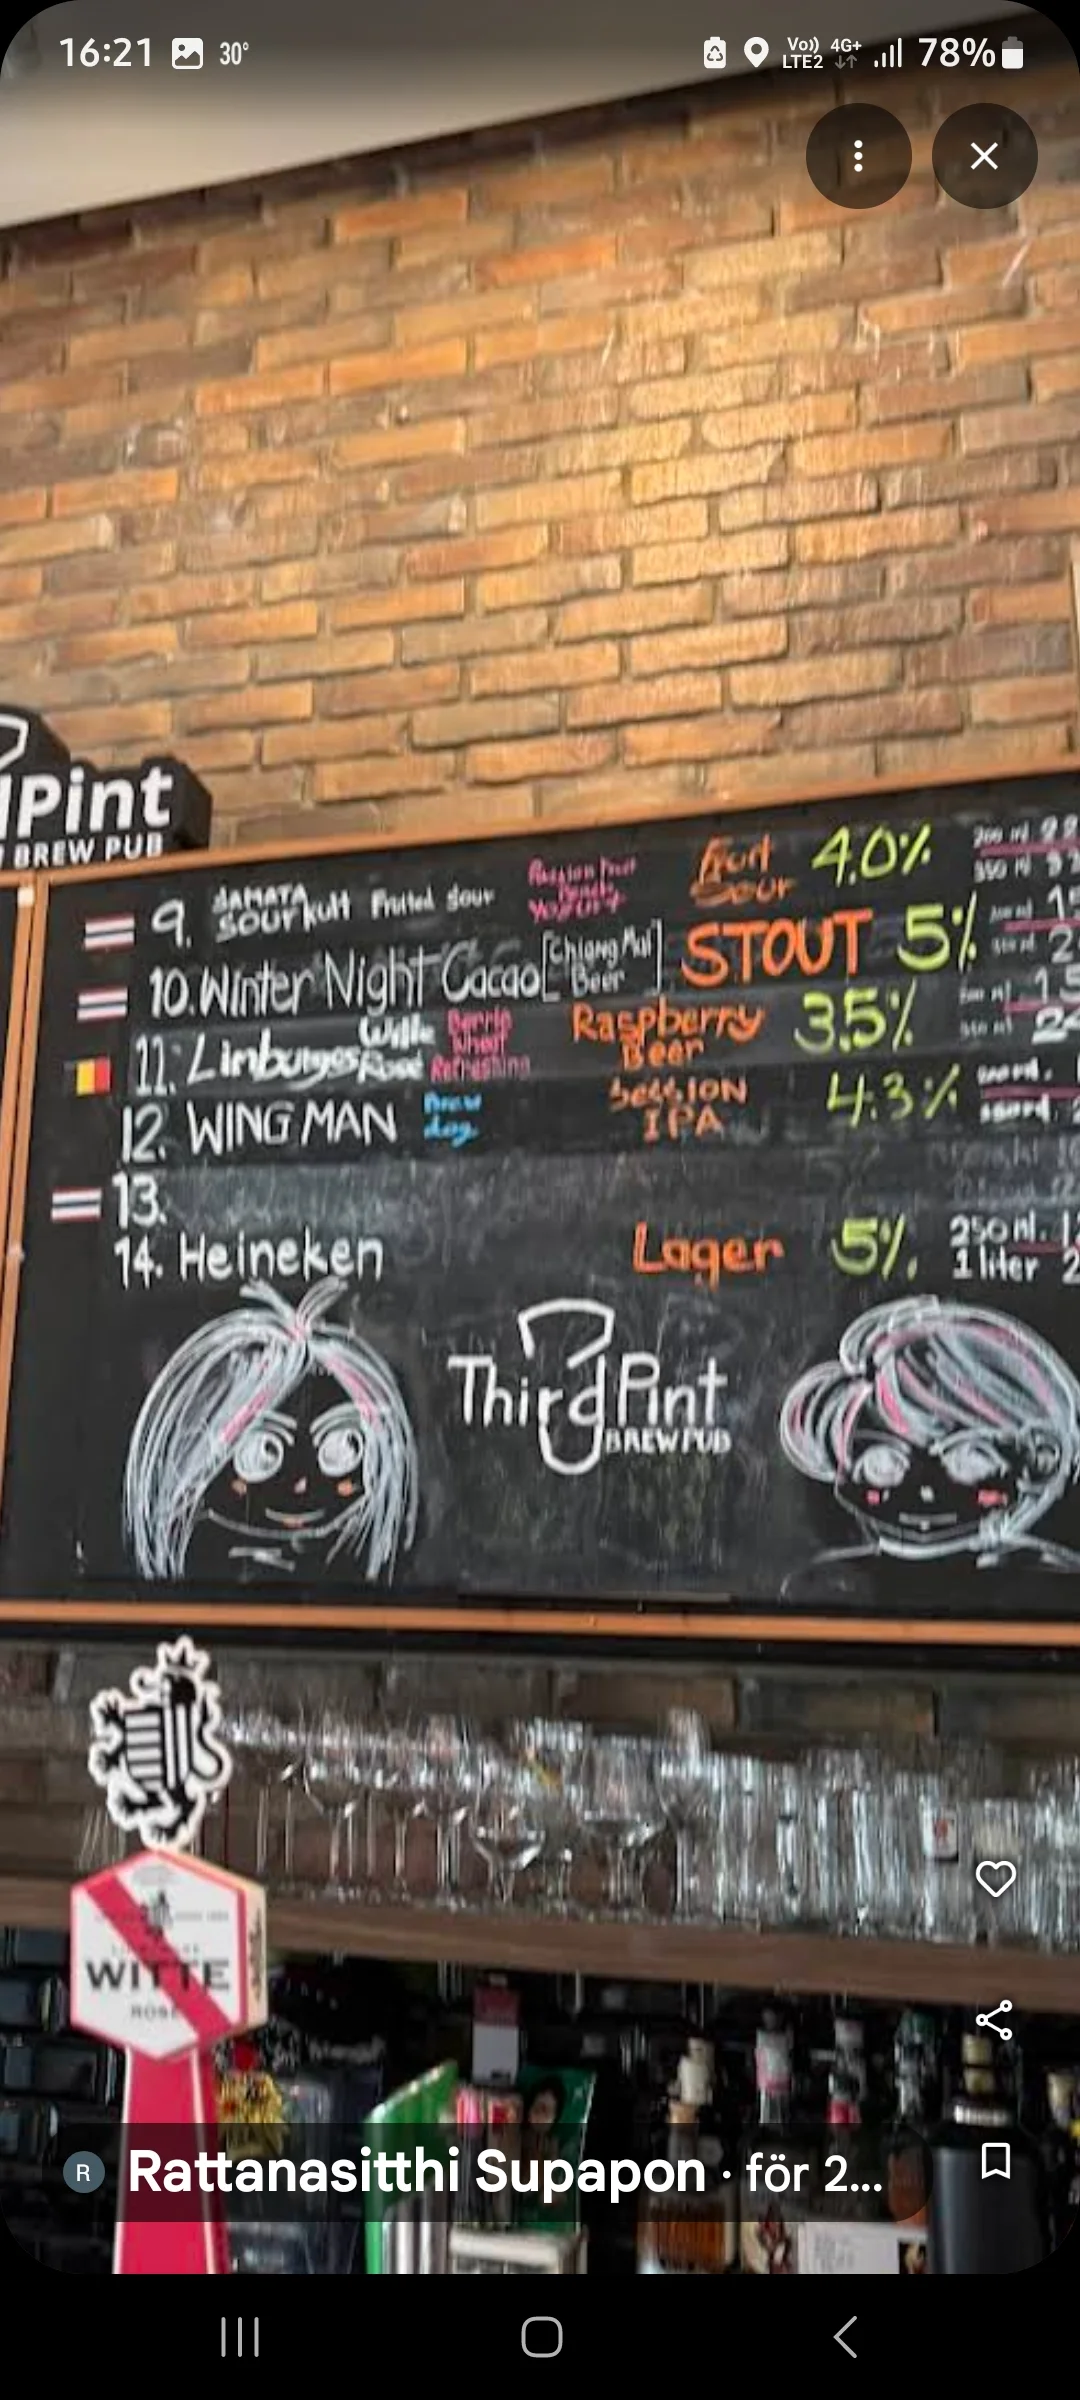 16:21 30°
Vo)) LTE2 4G+ 78%
Pint
BREW PUB
9. SAMATA SOURkult Fruited Sour Passion fruit Peach Yozurt Fruit Sour 4.0%
350 ml
10. Winter Night Cacao [Chiang Mai Beer] STOUT 5%
11. Limburgse Witte Rosé Berrie Wheat Refreshing Raspberry Beer 3.5%
12. WING MAN Brew dog SESSION IPA 4.3%
13.
14. Heineken Lager 5% 250 ml.
1 liter
Third Pint
BREWPUB
WITTE
ROSÉ
R Rattanasitthi Supapon · för 2...